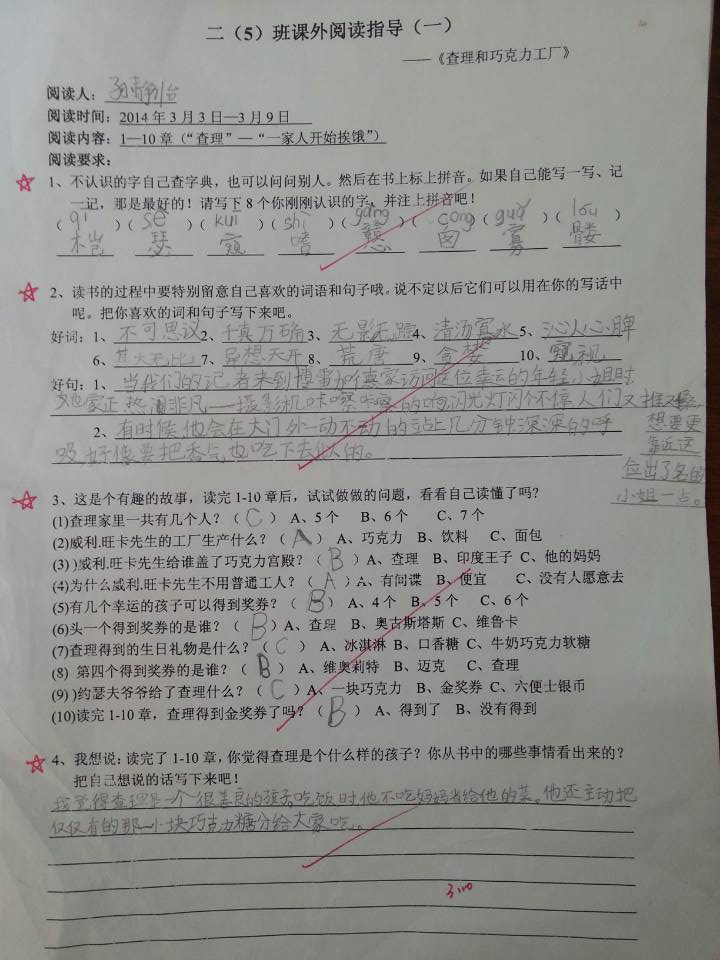 二（5）班课外阅读指导（一）
——《查理和巧克力工厂》
阅读人：
阅读时间：2014年3月3日—3月9日
阅读内容：1—10章（“查理”—“一家人开始挨饿”）
阅读要求：
1、不认识的字自己查字典，也可以问问别人。然后在书上标上拼音。如果自己能写一写、记
一记，那是最好的！请写下8个你刚刚认识的字，并注上拼音吧！
（qi）（sè）（kuī）（shì）（gàng）（cong）（guǎ）（lóu）
瑟 窥 嗜 戆 囱 寡 髅
2、读书的过程中要特别留意自己喜欢的词语和句子哦。说不定以后它们可以用在你的写话中
呢。把你喜欢的词和句子写下来吧。
好词：1、不可思议2、千真万确3、无影无踪4、清汤寡水5、沁人心脾
6、其大无比7、异想天开8、荒唐9、贪婪10、窥视
好句：1、当我们的记者来到博雷加德家访问这位幸运的年轻小姐时
她家正热闹非凡——摄影机咔嚓咔嚓的响闪光灯闪个不停人们又推又
想要更
靠近这
位出了名的
小姐一点。
2、有时候他会在大门外一动不动的站上几分钟深深的呼
吸,好像要把香气也吃下去似的。
3、这是个有趣的故事，读完1-10章后，试试做做的问题，看看自己读懂了吗？
(1)查理家里一共有几个人？（C） A、5个 B、6个 C、7个
(2)威利.旺卡先生的工厂生产什么？（A） A、巧克力 B、饮料 C、面包
(3) )威利.旺卡先生给谁盖了巧克力宫殿？（B）A、查理 B、印度王子 C、他的妈妈
(4)为什么威利.旺卡先生不用普通工人？（A）A、有间谍 B、便宜 C、没有人愿意去
(5)有几个幸运的孩子可以得到奖券？（B） A、4个 B、5个 C、6个
(6)头一个得到奖券的是谁？（B）A、查理 B、奥古斯塔斯 C、维鲁卡
(7)查理得到的生日礼物是什么？（C） A、冰淇淋 B、口香糖 C、牛奶巧克力软糖
(8) 第四个得到奖券的是谁？（B） A、维奥莉特 B、迈克 C、查理
(9) )约瑟夫爷爷给了查理什么？（C）A、一块巧克力 B、金奖券 C、六便士银币
(10)读完1-10章，查理得到金奖券了吗？（B） A、得到了 B、没有得到
4、我想说：读完了1-10章，你觉得查理是个什么样的孩子？你从书中的哪些事情看出来的？
把自己想说的话写下来吧！
我觉得查理是一个很善良的孩子。吃饭时他不吃妈妈省给他的菜。他还主动把
仅仅有的那一小块巧克力糖分给大家吃。
3.10